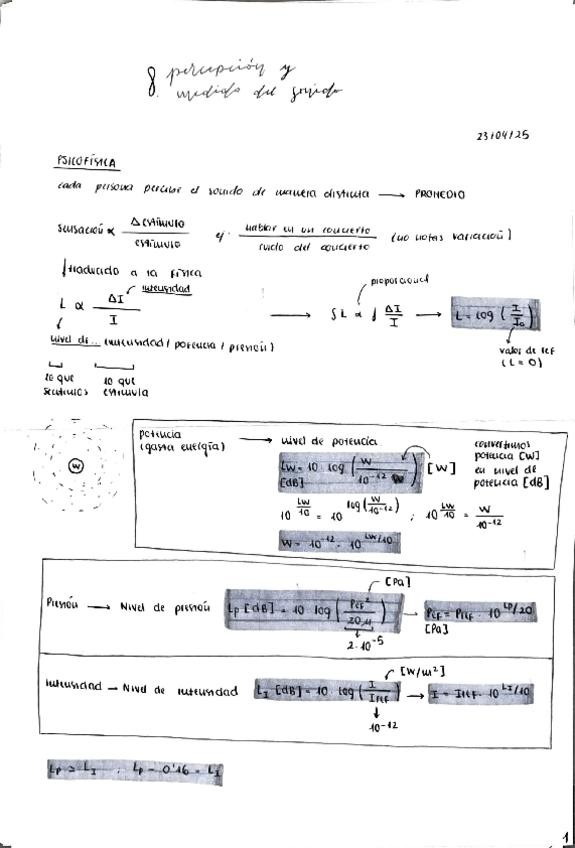 8. percepción y
medida del sonido
23/04/25
PSICOFÍSICA
cada persona percibe el sonido de manera distinta → PROMEDIO
sensación ∝ Δ estímulo / estímulo ej. hablar en un concierto / ruido del concierto (no notas variación)
↓ traducido a la física
L ∝ ΔI / I intensidad
proporcional
→ SL ∝ ∫ ΔI / I → L = log (I / I₀)
nivel de... intensidad / potencia / presión)
valor de ref
(L = 0)
lo que sentimos
lo que estimula
W
potencia
(gasta energía)
→ nivel de potencia
Lw = 10 · log (W / 10⁻¹² W) [W]
[dB]
convertimos
potencia [W]
en nivel de
potencia [dB]
10^(Lw/10) = 10^(log(W/10⁻¹²)) ; 10^(Lw/10) = W / 10⁻¹²
W = 10⁻¹² · 10^(Lw/10)
[Pa]
Presión → Nivel de presión Lp [dB] = 10 log (Pef² / 20μ) → Pef = Pref · 10^(Lp/20)
[Pa]
2·10⁻⁵
[W/m²]
Intensidad → Nivel de intensidad L_I [dB] = 10 log (I / Iref) → I = Iref · 10^(L_I/10)
10⁻¹²
Lp ≃ L_I ; Lp - 0'16 = L_I
1